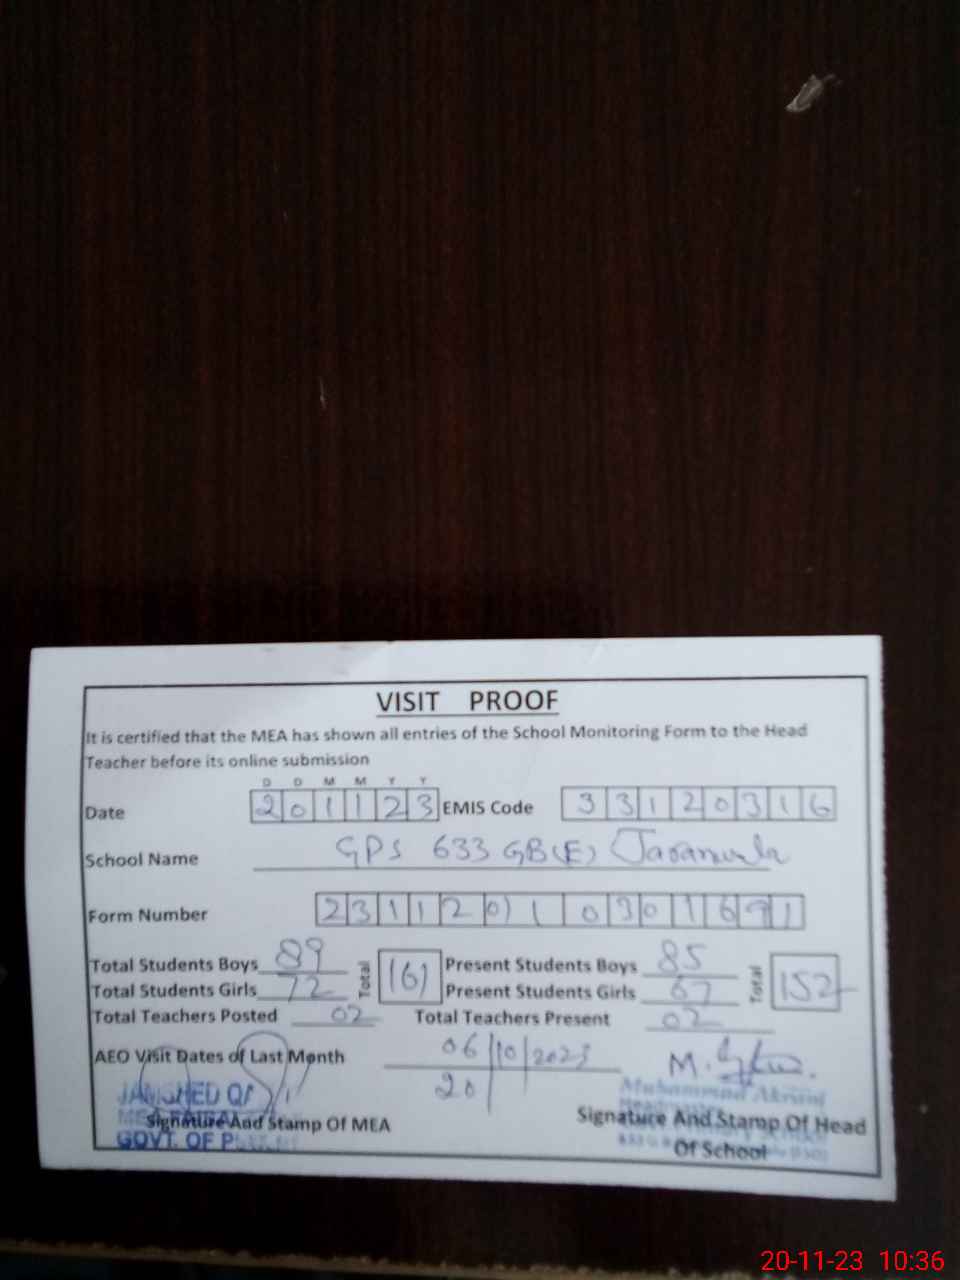 VISIT PROOF
It is certified that the MEA has shown all entries of the School Monitoring Form to the Head
Teacher before its online submission
D D M M Y Y
Date 201123 EMIS Code 33120316
School Name GPS 633 GB(E) Jaranwala
Form Number
Total Students Boys 89 Total 161 Present Students Boys 85 Total 152
Total Students Girls 72 Present Students Girls 67
Total Teachers Posted 02 Total Teachers Present 02
AEO Visit Dates of Last Month 06/10/2023 M.
20
JAMSHED Muhammad Akram
Signature And Stamp Of MEA Signature And Stamp Of Head
GOVT. OF Of School
20-11-23 10:36